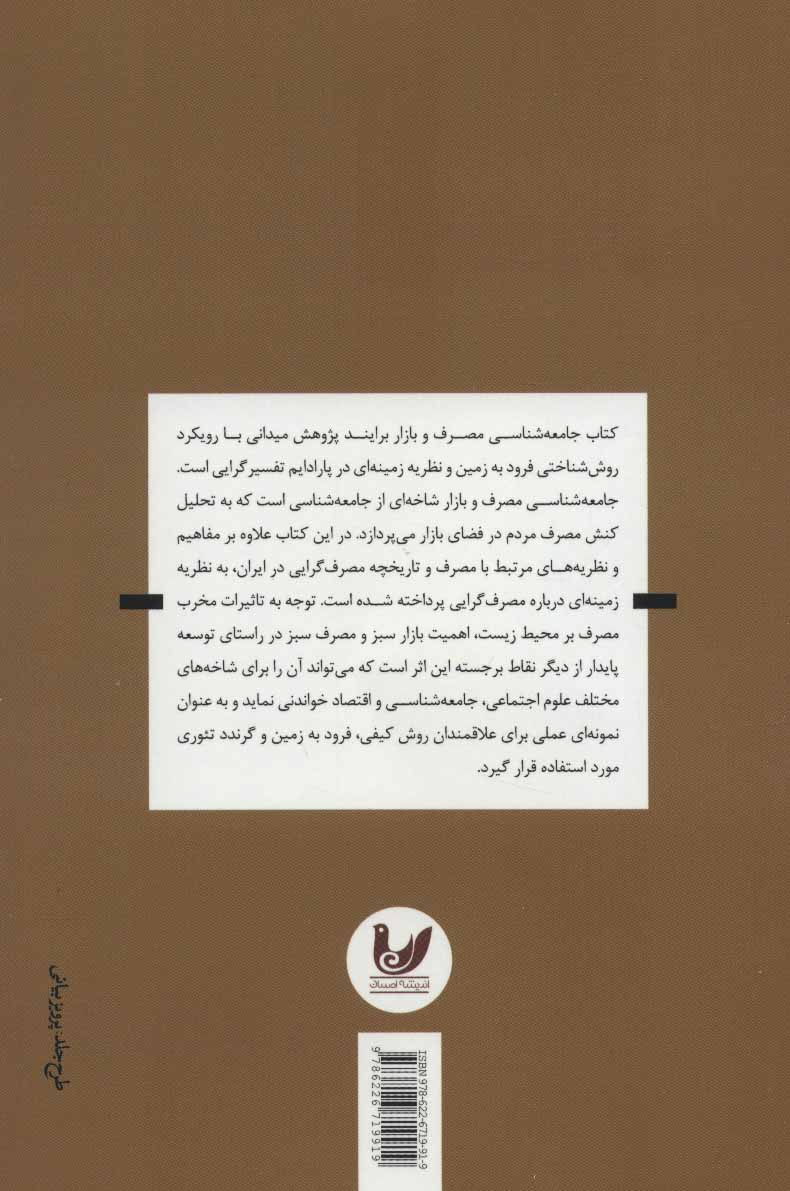 کتاب جامعه‌شناسی مصرف و بازار برایند پژوهش میدانی با رویکرد
روش‌شناختی فرود به زمین و نظریه زمینه‌ای در پارادایم تفسیرگرایی است.
جامعه‌شناسی مصرف و بازار شاخه‌ای از جامعه‌شناسی است که به تحلیل
کنش مصرف مردم در فضای بازار می‌پردازد. در این کتاب علاوه بر مفاهیم
و نظریه‌های مرتبط با مصرف و تاریخچه مصرف‌گرایی در ایران، به نظریه
زمینه‌ای درباره مصرف‌گرایی پرداخته شده است. توجه به تاثیرات مخرب
مصرف بر محیط زیست، اهمیت بازار سبز و مصرف سبز در راستای توسعه
پایدار از دیگر نقاط برجسته این اثر است که می‌تواند آن را برای شاخه‌های
مختلف علوم اجتماعی، جامعه‌شناسی و اقتصاد خواندنی نماید و به عنوان
نمونه‌ای عملی برای علاقمندان روش کیفی، فرود به زمین و گرندد تئوری
مورد استفاده قرار گیرد.
اندیشه احسان
طرح جلد: پرویز بیانی
ISBN 978-622-6719-91-9
9 786226 719919